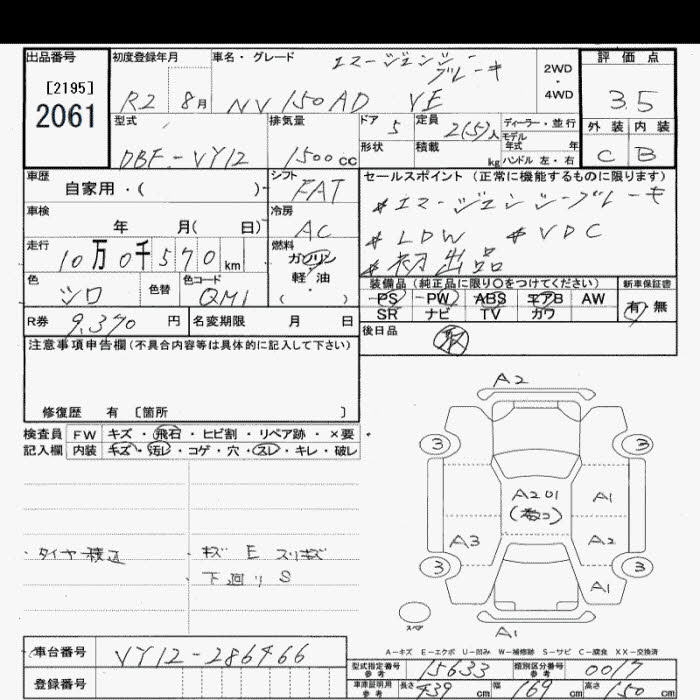 出品番号
[2195]
2061
初度登録年月
R2 8月
車名・グレード
エマージェンシー
ブレーキ
NV150AD VE
2WD
・
4WD
評価点
3.5
外装 内装
C B
型式
DBF-VY12
排気量
1500cc
ドア 5
定員 2(5)人
ディーラー・並行
モデル
年式 年
形状
積載 kg
ハンドル 左・右
車歴
自家用・( )
シフト
FAT
セールスポイント (正常に機能するものに限ります)
#エマージェンシーブレーキ
#LDW #VDC
#初出品
車検
年 月( 日)
冷房
AC
走行
10万0千570km
燃料
ガソリン
軽・油
( ・ )
色
シロ
色替
色コード
QM1
装備品 (純正品に限り○をつけてください)
PS PW ABS エアB AW
SR ナビ TV カワ
新車保証書
有・無
R券 9,370円
名変期限 月 日
後日品
取
注意事項申告欄(不具合内容等は具体的に記入して下さい)
修復歴 有 [箇所 ]
検査員
記入欄
FW キズ・飛石・ヒビ割・リペア跡・×要
内装 キズ・汚レ・コゲ・穴・スレ・キレ・破レ
・タイヤ積込
・キズ E スリキズ
・下廻り S
A2
3 3
A201
A1
A3
A2
3 3
A1
スペア
A1
A-キズ E-エクボ U-凹み W-補修跡 S-サビ C-腐食 XX-交換済
車台番号 VY12-286466
登録番号
型式指定番号
参考
15633
類別区分番号
参考
0017
車庫証明用
参考
長さ 439cm 幅 169cm 高さ 150cm